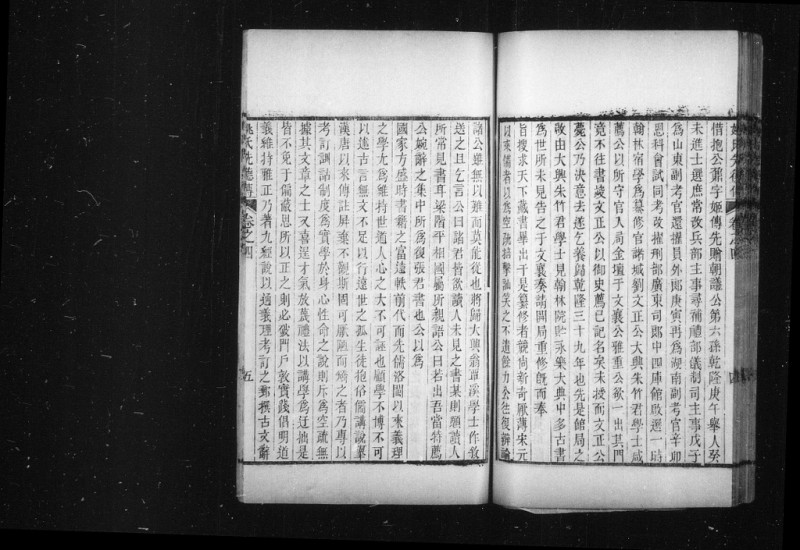 惜抱公鼐字姬傳先贈朝議公第六孫乾隆庚午舉人癸
未進士選庶常改兵部主事尋補禮部儀制司主事戊子
為山東副考官還擢員外郎庚寅再為湖南副考官辛卯
恩科會試同考改擢刑部廣東司郎中四庫館啟選一時
翰林宿學為纂修官諸城劉文正公大興朱竹君學士咸
薦公以所守官入局金壇于文襄公雅重公欲一出其門
竟不往書竣文正公以御史薦已記名矣未授而文正公
薨公乃決意去遂乞養歸乾隆三十九年也先是館局之
啟由大興朱竹君學士見翰林院貯永樂大典中多古書
為世所未見告之于文襄奏請開局重修既而奉
旨搜求天下藏書畢出于是纂修者競尚新奇厭薄宋元
以來儒者以為空疏掊擊訕笑之不遺餘力公往復辯論
諸公雖無以難而莫能從也將歸大興翁覃溪學士作敘
送之且乞言公曰諸君皆欲讀人未見之書某則願讀人
所常見書耳梁階平相國屬所親語公曰若出吾當特薦
公婉辭之集中所為復張君書也公以為
國家方盛時書籍之富遠軼前代而先儒洛閩以來義理
之學尤為維持世道人心之大不可誣也顧學不博不可
以述古言無文不足以行遠世之孤生徒抱俗儒講說舉
漢唐以來傳註屏棄不觀斯固可厭陋而矯之者乃專以
考訂訓詁制度為實學於身心性命之說則斥為空疏無
據其文章之士又喜逞才氣放蔑禮法以講學為迂拙是
皆不免于偏蔽思所以正之則必破門戶敦實踐倡明道
義維持雅正乃著九經說以通義理考訂之郵撰古文辭
卷之四
五